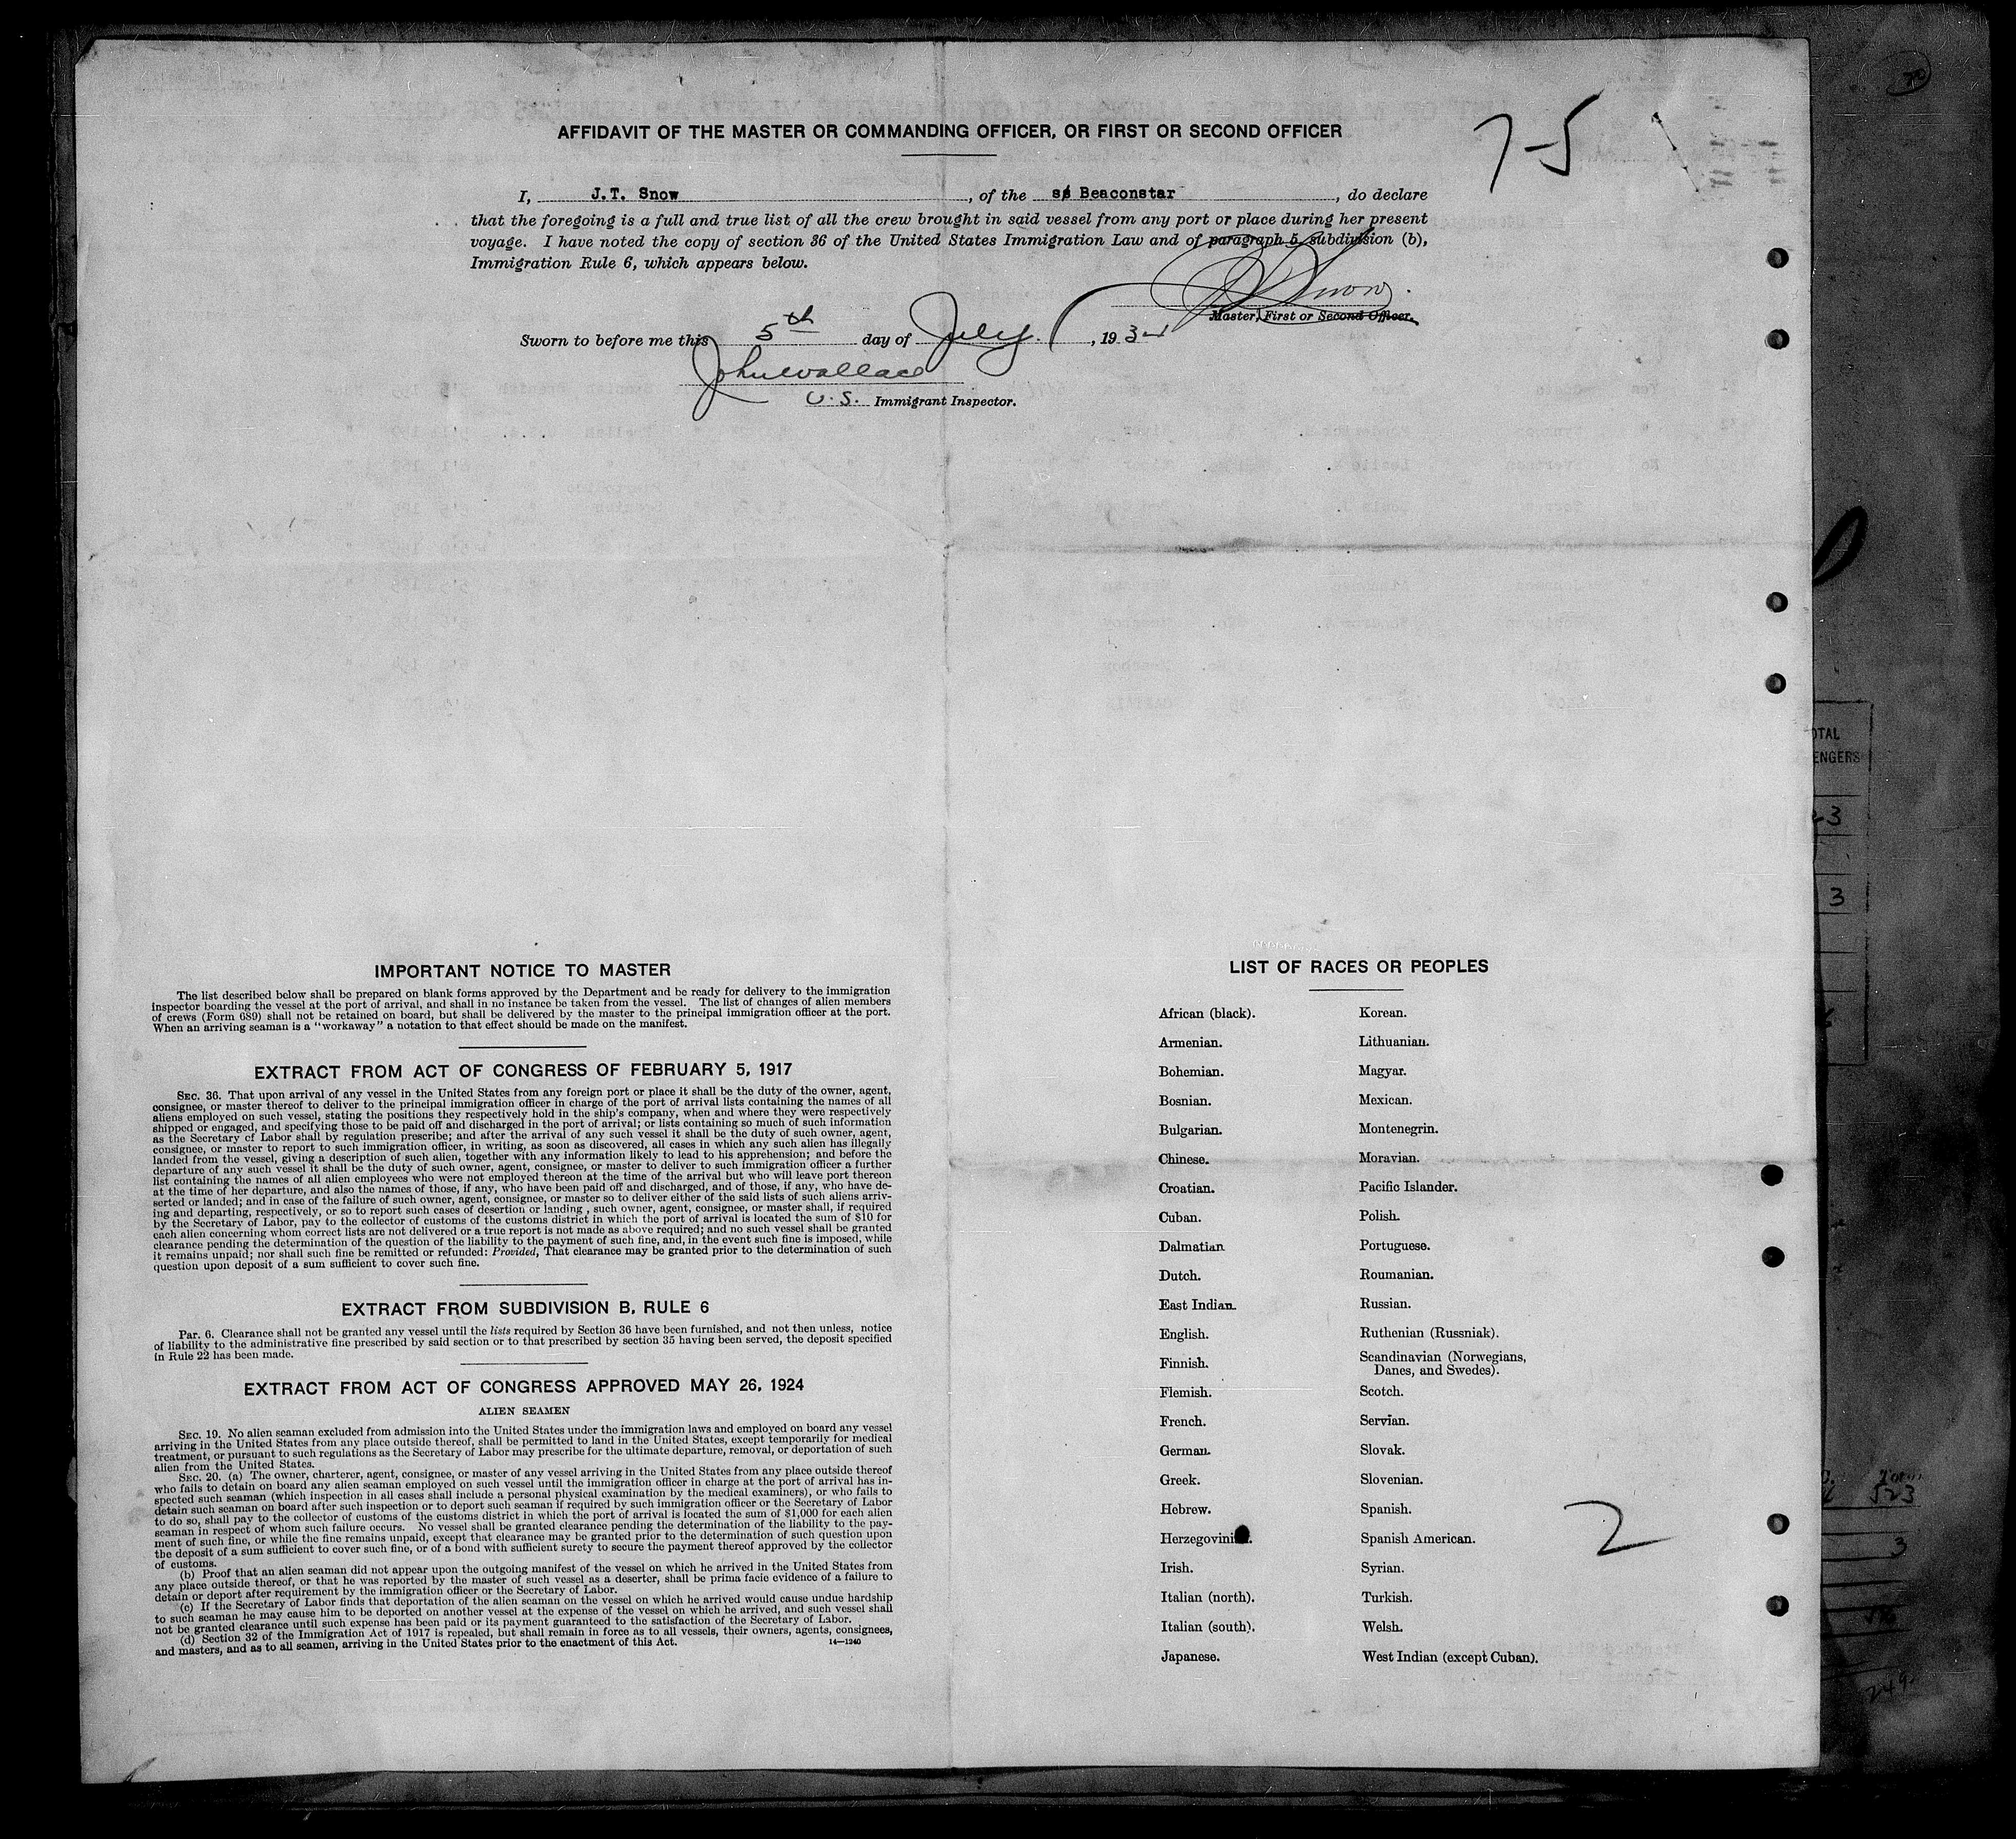 AFFIDAVIT OF THE MASTER OR COMMANDING OFFICER, OR FIRST OR SECOND OFFICER
7-5
I, J.T. Snow, of the ss Beaconstar, do declare
that the foregoing is a full and true list of all the crew brought in said vessel from any port or place during her present
voyage. I have noted the copy of section 36 of the United States Immigration Law and of paragraph 5, subdivision (b),
Immigration Rule 6, which appears below.
Snow
Master, First or Second Officer.
Sworn to before me this 5th day of July, 193
John Wallace
U.S. Immigrant Inspector.
IMPORTANT NOTICE TO MASTER
The list described below shall be prepared on blank forms approved by the Department and be ready for delivery to the immigration
inspector boarding the vessel at the port of arrival, and shall in no instance be taken from the vessel. The list of changes of alien members
of crews (Form 689) shall not be retained on board, but shall be delivered by the master to the principal immigration officer at the port.
When an arriving seaman is a "workaway" a notation to that effect should be made on the manifest.
EXTRACT FROM ACT OF CONGRESS OF FEBRUARY 5, 1917
SEC. 36. That upon arrival of any vessel in the United States from any foreign port or place it shall be the duty of the owner, agent,
consignee, or master thereof to deliver to the principal immigration officer in charge of the port of arrival lists containing the names of all
aliens employed on such vessel, stating the positions they respectively hold in the ship's company, when and where they were respectively
shipped or engaged, and specifying those to be paid off and discharged in the port of arrival; or lists containing so much of such information
as the Secretary of Labor shall by regulation prescribe; and after the arrival of any such vessel it shall be the duty of such owner, agent,
consignee, or master to report to such immigration officer, in writing, as soon as discovered, all cases in which any such alien has illegally
landed from the vessel, giving a description of such alien, together with any information likely to lead to his apprehension; and before the
departure of any such vessel it shall be the duty of such owner, agent, consignee, or master to deliver to such immigration officer a further
list containing the names of all alien employees who were not employed thereon at the time of the arrival but who will leave port thereon
at the time of her departure, and also the names of those, if any, who have been paid off and discharged, and of those, if any, who have de-
serted or landed; and in case of the failure of such owner, agent, consignee, or master so to deliver either of the said lists of such aliens arriv-
ing and departing, respectively, or so to report such cases of desertion or landing , such owner, agent, consignee, or master shall, if required
by the Secretary of Labor, pay to the collector of customs of the customs district in which the port of arrival is located the sum of $10 for
each alien concerning whom correct lists are not delivered or a true report is not made as above required; and no such vessel shall be granted
clearance pending the determination of the question of the liability to the payment of such fine, and, in the event such fine is imposed, while
it remains unpaid; nor shall such fine be remitted or refunded: Provided, That clearance may be granted prior to the determination of such
question upon deposit of a sum sufficient to cover such fine.
EXTRACT FROM SUBDIVISION B, RULE 6
Par. 6. Clearance shall not be granted any vessel until the lists required by Section 36 have been furnished, and not then unless, notice
of liability to the administrative fine prescribed by said section or to that prescribed by section 35 having been served, the deposit specified
in Rule 22 has been made.
EXTRACT FROM ACT OF CONGRESS APPROVED MAY 26, 1924
ALIEN SEAMEN
SEC. 19. No alien seaman excluded from admission into the United States under the immigration laws and employed on board any vessel
arriving in the United States from any place outside thereof, shall be permitted to land in the United States, except temporarily for medical
treatment, or pursuant to such regulations as the Secretary of Labor may prescribe for the ultimate departure, removal, or deportation of such
alien from the United States.
SEC. 20. (a) The owner, charterer, agent, consignee, or master of any vessel arriving in the United States from any place outside thereof
who fails to detain on board any alien seaman employed on such vessel until the immigration officer in charge at the port of arrival has in-
spected such seaman (which inspection in all cases shall include a personal physical examination by the medical examiners), or who fails to
detain such seaman on board after such inspection or to deport such seaman if required by such immigration officer or the Secretary of Labor
to do so, shall pay to the collector of customs of the customs district in which the port of arrival is located the sum of $1,000 for each alien
seaman in respect of whom such failure occurs. No vessel shall be granted clearance pending the determination of the liability to the pay-
ment of such fine, or while the fine remains unpaid, except that clearance may be granted prior to the determination of such question upon
the deposit of a sum sufficient to cover such fine, or of a bond with sufficient surety to secure the payment thereof approved by the collector
of customs.
(b) Proof that an alien seaman did not appear upon the outgoing manifest of the vessel on which he arrived in the United States from
any place outside thereof, or that he was reported by the master of such vessel as a deserter, shall be prima facie evidence of a failure to
detain or deport after requirement by the immigration officer or the Secretary of Labor.
(c) If the Secretary of Labor finds that deportation of the alien seaman on the vessel on which he arrived would cause undue hardship
to such seaman he may cause him to be deported on another vessel at the expense of the vessel on which he arrived, and such vessel shall
not be granted clearance until such expense has been paid or its payment guaranteed to the satisfaction of the Secretary of Labor.
(d) Section 32 of the Immigration Act of 1917 is repealed, but shall remain in force as to all vessels, their owners, agents, consignees,
and masters, and as to all seamen, arriving in the United States prior to the enactment of this Act.
14—1240
LIST OF RACES OR PEOPLES
African (black). Korean.
Armenian. Lithuanian.
Bohemian. Magyar.
Bosnian. Mexican.
Bulgarian. Montenegrin.
Chinese. Moravian.
Croatian. Pacific Islander.
Cuban. Polish.
Dalmatian Portuguese.
Dutch. Roumanian.
East Indian. Russian.
English. Ruthenian (Russniak).
Finnish. Scandinavian (Norwegians,
Danes, and Swedes).
Flemish. Scotch.
French. Servian.
German. Slovak.
Greek. Slovenian.
Hebrew. Spanish.
Herzegovinian. Spanish American.
Irish. Syrian.
Italian (north). Turkish.
Italian (south). Welsh.
Japanese. West Indian (except Cuban).
2
OTAL
ENGERS
3
3
523
3
249